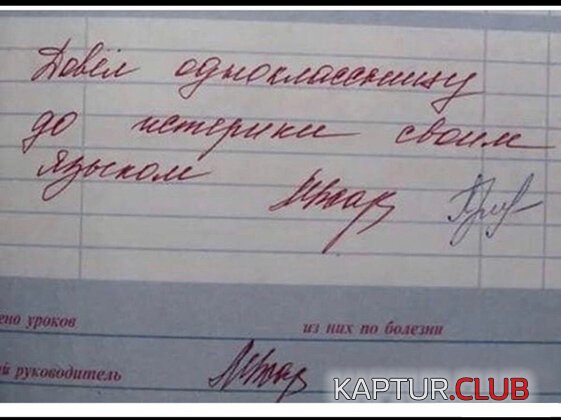 Довёл одноклассницу
до истерики своим
языком
ено уроков
из них по болезни
й руководитель
KAPTUR.CLUB